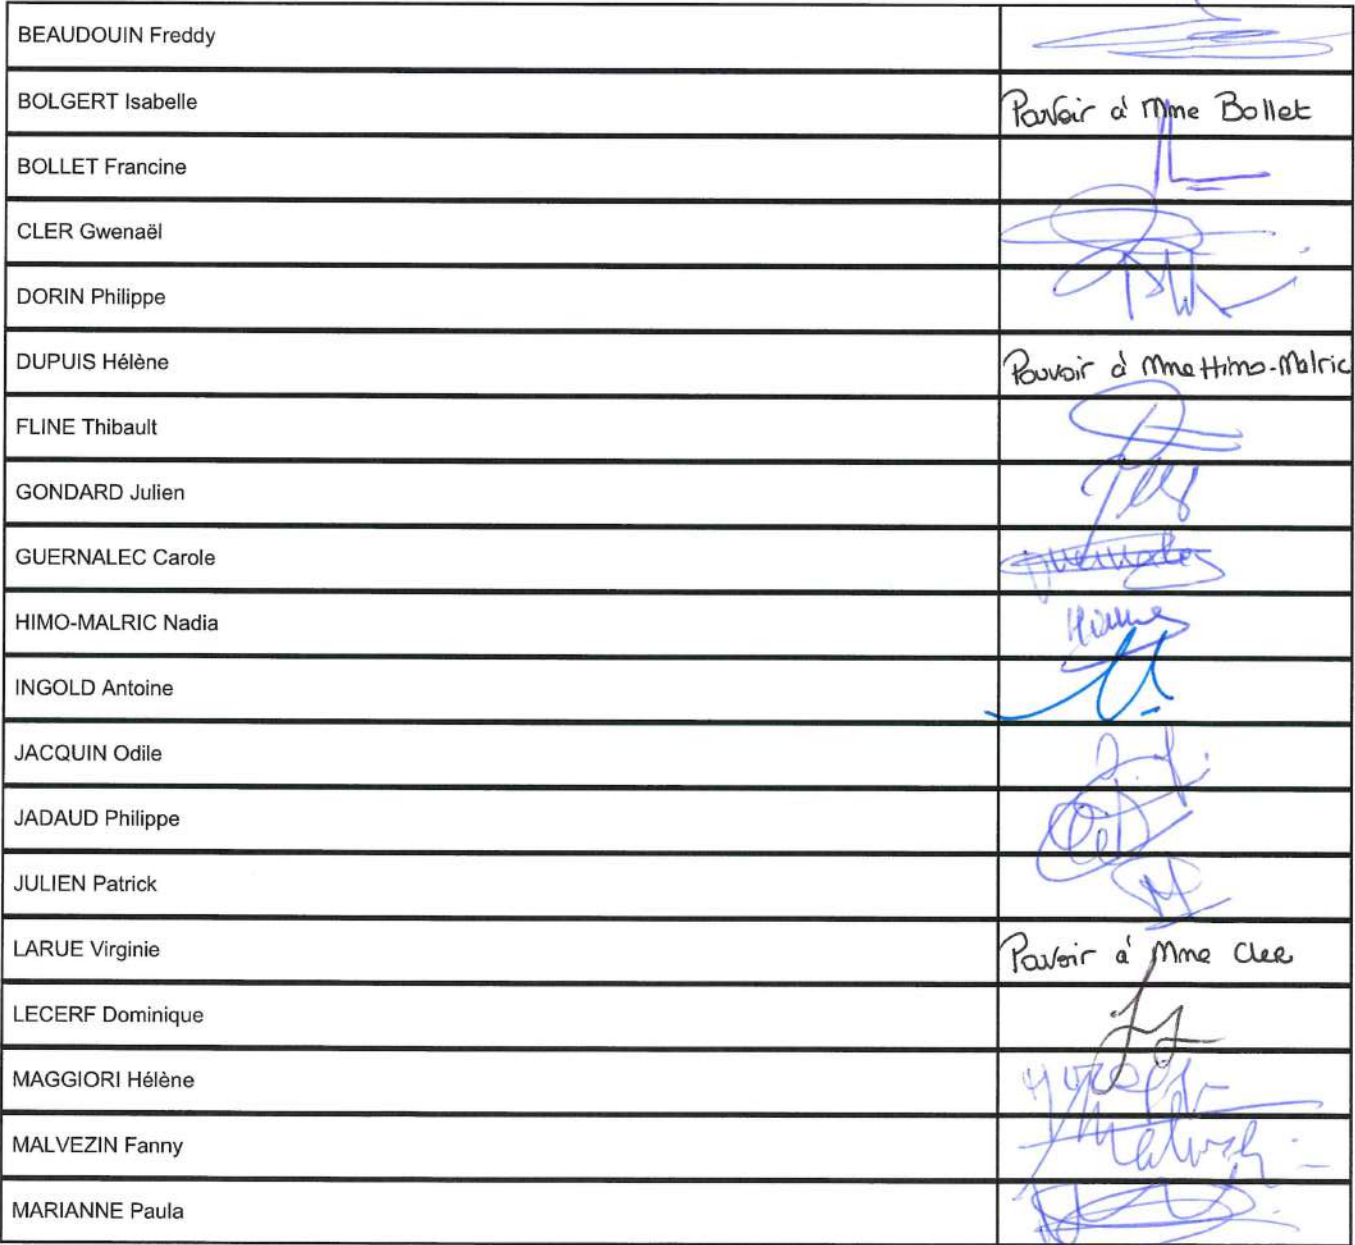 BEAUDOUIN Freddy
BOLGERT Isabelle Pouvoir à Mme Bollet
BOLLET Francine
CLER Gwenaël
DORIN Philippe
DUPUIS Hélène Pouvoir à Mme Himo-Malric
FLINE Thibault
GONDARD Julien
GUERNALEC Carole
HIMO-MALRIC Nadia
INGOLD Antoine
JACQUIN Odile
JADAUD Philippe
JULIEN Patrick
LARUE Virginie Pouvoir à Mme Cler
LECERF Dominique
MAGGIORI Hélène
MALVEZIN Fanny
MARIANNE Paula